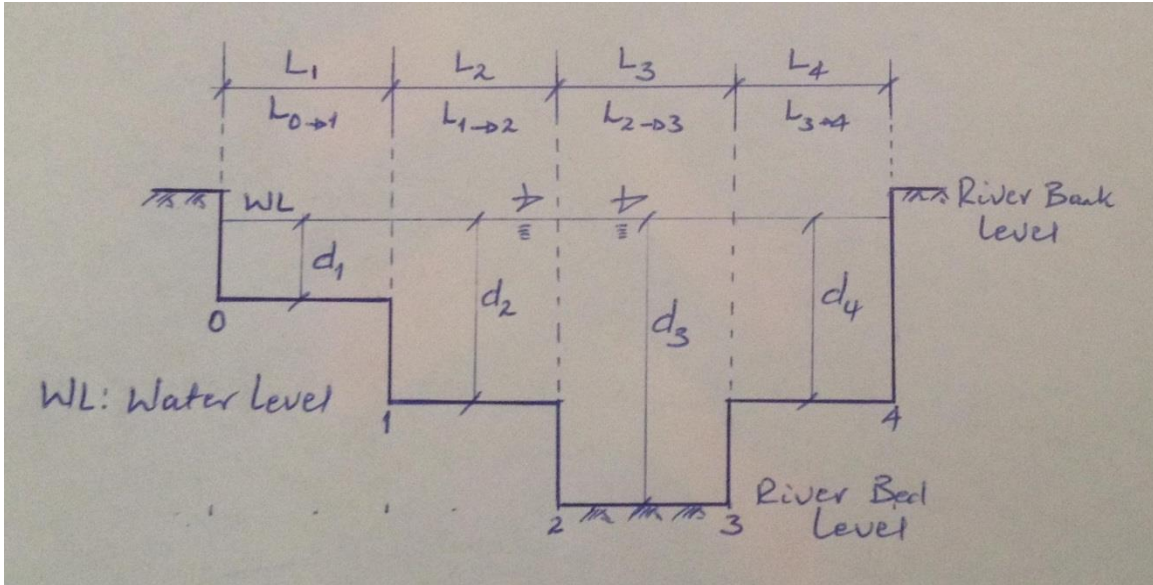 L₁ L₂ L₃ L₄
L₀→₁ L₁→₂ L₂→₃ L₃→₄
WL
River Bank
Level
d₁
d₂
d₃
d₄
0
WL: Water Level
1
4
2
3
River Bed
Level